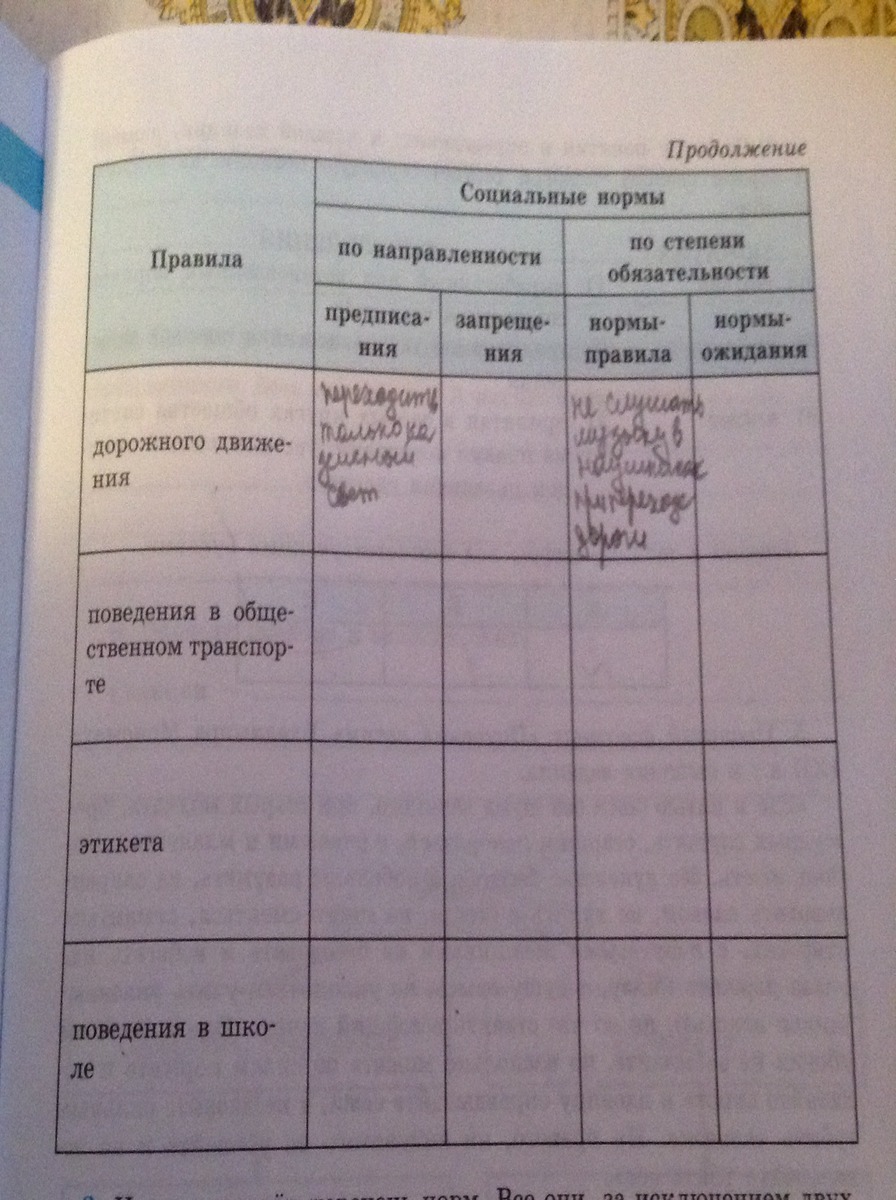 Продолжение
Правила
Социальные нормы
по направленности
по степени
обязательности
предписа-
ния
запреще-
ния
нормы-
правила
нормы-
ожидания
дорожного движе-
ния
переходить
только на
зеленый
свет
не слушать
музыку в
наушниках
при переходе
дороги
поведения в обще-
ственном транспор-
те
этикета
поведения в шко-
ле
перечень норм. Все они, за исключением двух